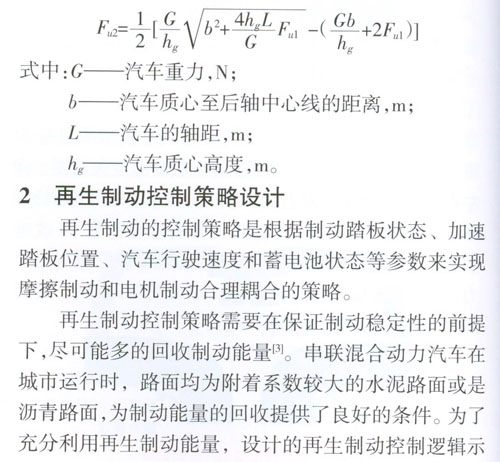 F_{u2}=\frac{1}{2}[\frac{G}{h_g}\sqrt{b^2+\frac{4h_gL}{G}F_{u1}}-(\frac{Gb}{h_g}+2F_{u1})]
式中:G——汽车重力,N;
b——汽车质心至后轴中心线的距离,m;
L——汽车的轴距,m;
h_g——汽车质心高度,m。
2 再生制动控制策略设计
再生制动的控制策略是根据制动踏板状态、加速
踏板位置、汽车行驶速度和蓄电池状态等参数来实现
摩擦制动和电机制动合理耦合的策略。
再生制动控制策略需要在保证制动稳定性的前提
下,尽可能多的回收制动能量[3]。串联混合动力汽车在
城市运行时，路面均为附着系数较大的水泥路面或是
沥青路面,为制动能量的回收提供了良好的条件。为了
充分利用再生制动能量，设计的再生制动控制逻辑示